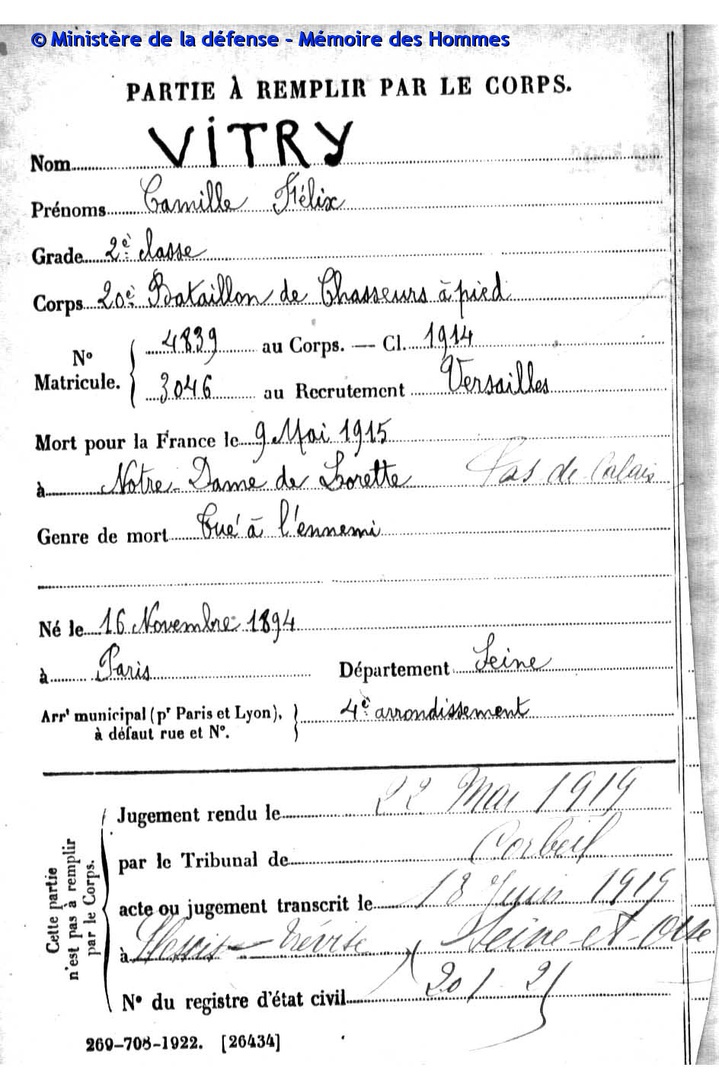 © Ministère de la défense - Mémoire des Hommes
PARTIE À REMPLIR PAR LE CORPS.
Nom VITRY
Prénoms Camille Félix
Grade 2e classe
Corps 20e Bataillon de Chasseurs à pied
N° Matricule. { 4839 au Corps. — Cl. 1914
3046 au Recrutement Versailles
Mort pour la France le 9 Mai 1915
à Notre-Dame de Lorette Pas de Calais
Genre de mort Tué à l'ennemi
Né le 16 Novembre 1894
à Paris Département Seine
Arrt municipal (pr Paris et Lyon), } 4e arrondissement
à défaut rue et N°.
Cette partie n'est pas à remplir par le Corps.
Jugement rendu le 22 Mai 1919
par le Tribunal de Corbeil
acte ou jugement transcrit le 18 Juin 1919
à Plessis-Trévise Seine-et-Oise
N° du registre d'état civil 201-21
269-708-1922. [26434]